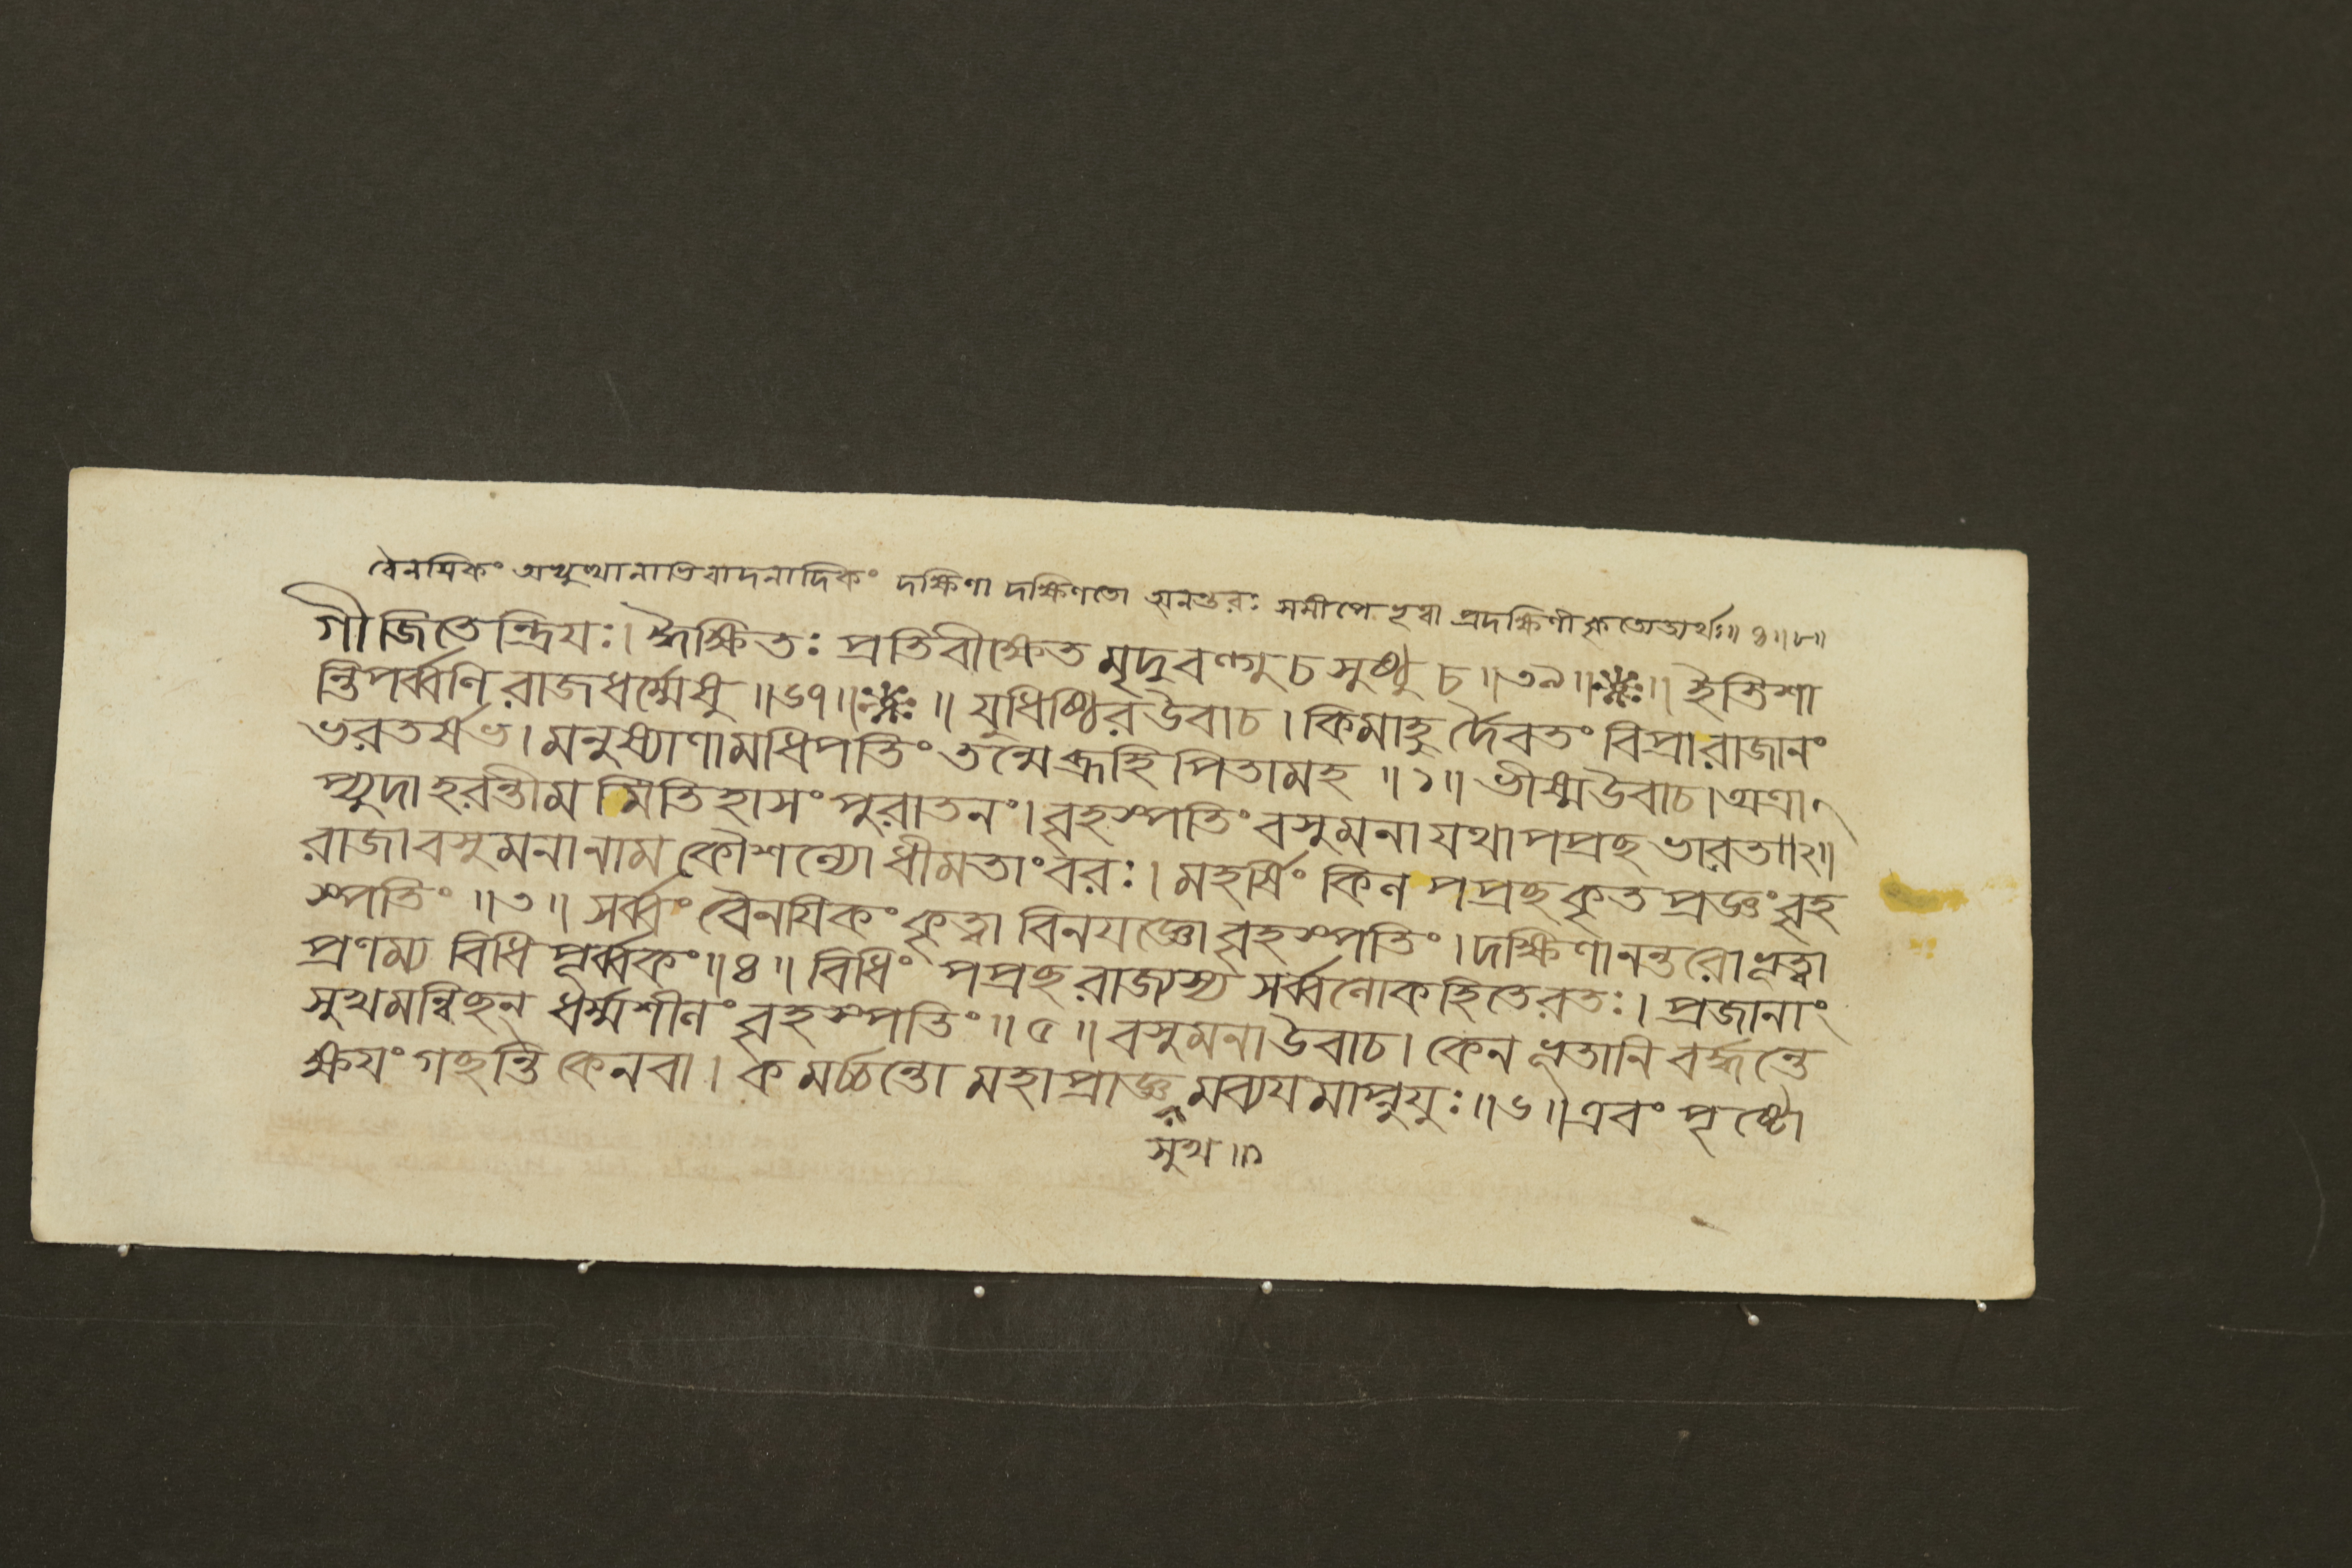 বৈনয়িকং অভ্যুত্থানাভিবাদনাদিকং দক্ষিণা দক্ষিণতো অনন্তরঃ সমীপে ভূত্বা প্রদক্ষিণীকৃত্যেত্যর্থঃ॥ ৪॥ ৮॥
গী জিতেন্দ্রিযঃ। ঈক্ষিতঃ প্রতিবীক্ষেত মৃদুবল্গু চ সুষ্ঠু চ॥৩৯॥ ॥ ইতি শা
ন্তিপর্ব্বণি রাজধর্ম্মেষু॥৬৭॥ ॥ যুধিষ্ঠির উবাচ। কিমাহু র্দৈবতং বিপ্রা রাজানং
ভরতর্ষভ। মনুষ্যাণামধিপতিং তন্মে ব্রূহি পিতামহ॥১॥ ভীষ্ম উবাচ। অত্রা
প্যুদাহরন্তীম মিতিহাসং পুরাতনং। বৃহস্পতিং বসুমনা যথা পপ্রছ ভারত॥২॥
রাজা বসুমনা নাম কৌশল্যো ধীমতাং বরঃ। মহর্ষিং কিল পপ্রছ কৃতপ্রজ্ঞং বৃহ
স্পতিং॥৩॥ সর্ব্বং বৈনযিকং কৃত্বা বিনযজ্ঞো বৃহস্পতিং। দক্ষিণানন্তরো ভূত্বা
প্রণম্য বিধি পূর্ব্বকং॥৪॥ বিধিং পপ্রছ রাজ্যস্য সর্ব্বলোকহিতে রতঃ। প্রজানাং
সুখমন্বিছন ধর্ম্মশীলং বৃহস্পতিং॥৫॥ বসুমনা উবাচ। কেন ভূতানি বর্দ্ধন্তে
ক্ষযং গছন্তি কেন বা। ক মর্চ্চন্তো মহাপ্রাজ্ঞ মব্যযমাপ্নুযুঃ॥৬॥ এবং পৃষ্টো
সুখ॥